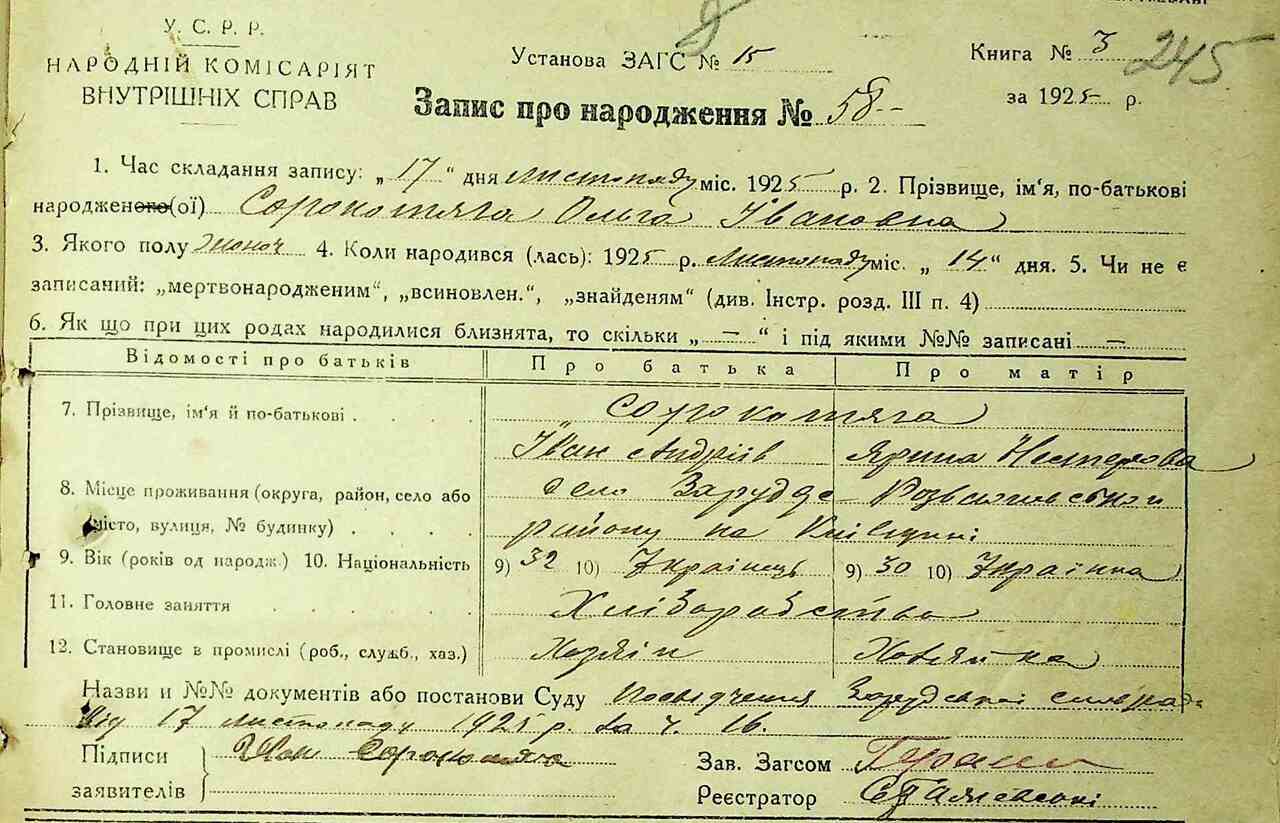 У. С. Р. Р.
НАРОДНІЙ КОМІСАРІЯТ
ВНУТРІШНІХ СПРАВ
Установа ЗАГС № 15
Книга № 3
245
за 1925 р.
Запис про народження № 58 –
1. Час складання запису: „ 17 “ дня Листопаду міс. 1925 р. 2. Прізвище, ім'я, по-батькові
народженого(ої) Сорокотяга Ольга Івановна
3. Якого полу жіноч 4. Коли народився (лась): 1925 р. Листопаду міс. „ 14 “ дня. 5. Чи не є
записаний: „мертвонародженим“, „всиновлен.“, „знайденям“ (див. Інстр. розд. III п. 4)
6. Як що при цих родах народилися близнята, то скільки „ — “ і під якими №№ записані —
Відомості про батьків Про батька Про матір
7. Прізвище, ім'я й по-батькові Сорокотяга
Іван Андріїв Ярина Нестерова
8. Місце проживання (округа, район, село або село Заруддє Розважевського
місто, вулиця, № будинку) району на Київщині
9. Вік (років од народж.) 10. Національність 9) 32 10) Українець 9) 30 10) Українка
11. Головне заняття Хліборобство
12. Становище в промислі (роб., служб., хаз.) Хазяїн Хазяйка
Назви и №№ документів або постанови Суду Посвідчення Зарудської сільради
від 17 листопаду 1925 р. за ч. 16.
Підписи Іван Сорокотяга Зав. Загсом
заявителів Реєстратор